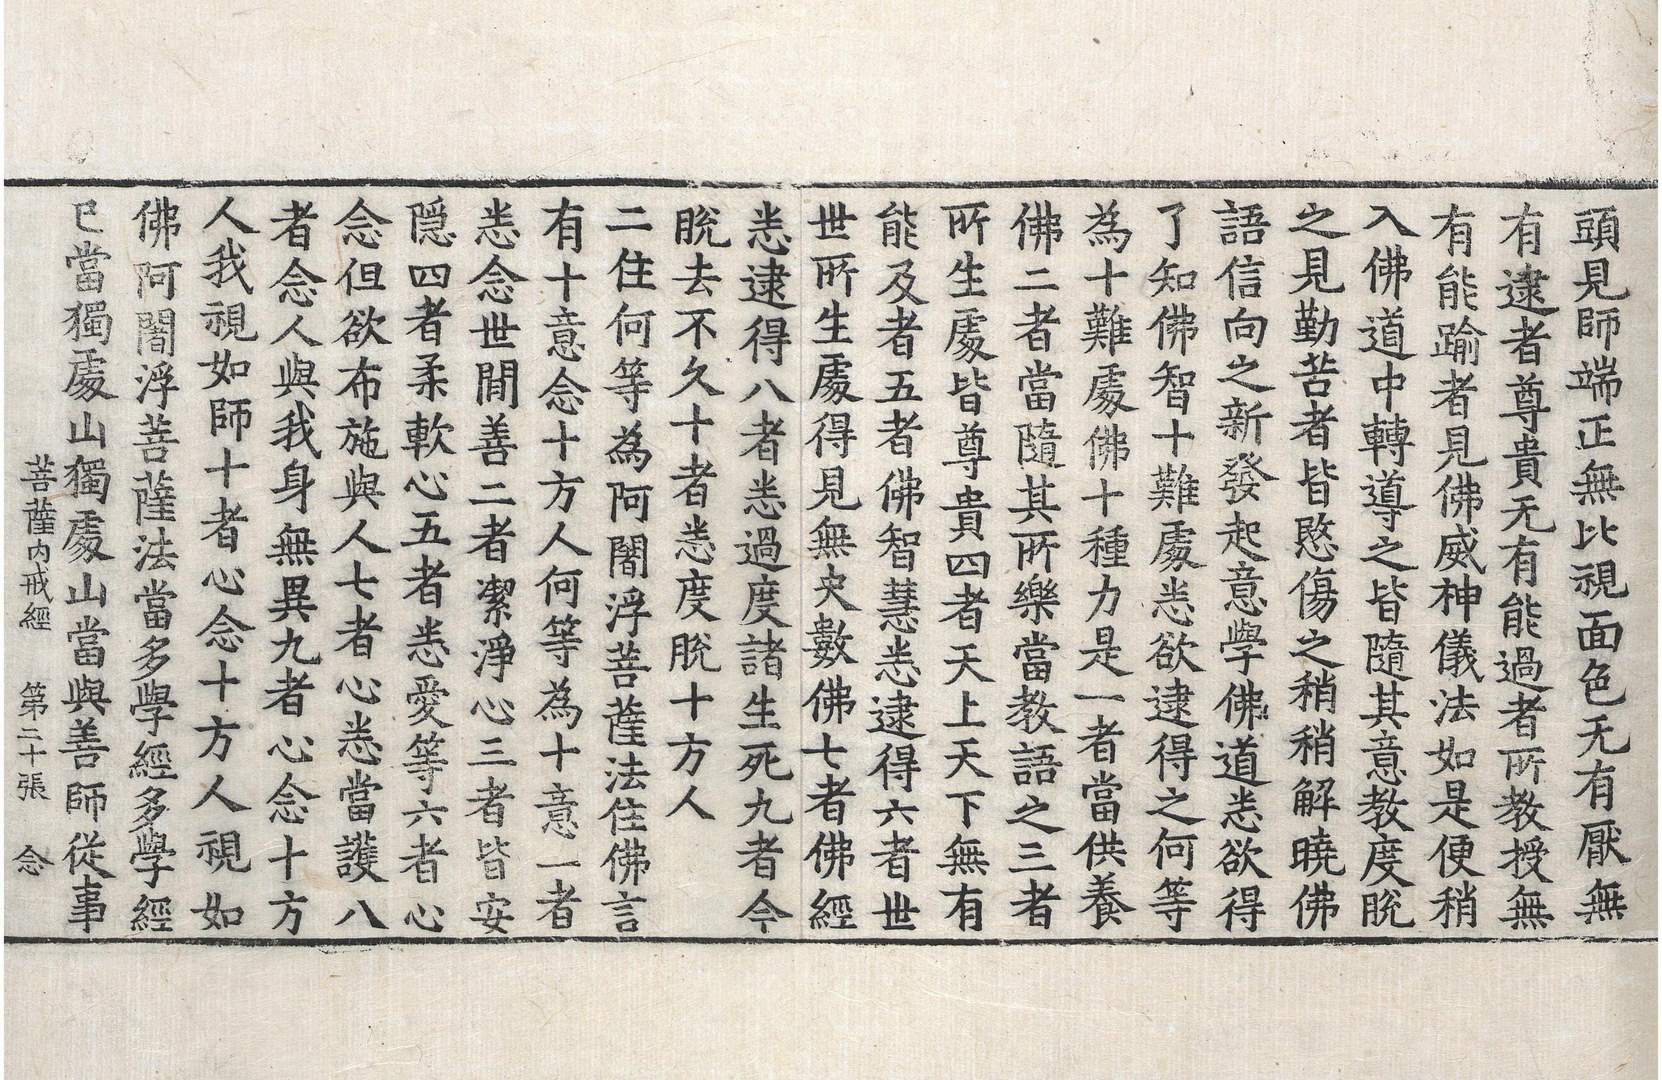 頭見師端正無比視面色无有厭無
有逮者尊貴无有能過者所教授無
有能踰者見佛威神儀法如是便稍
入佛道中轉導之皆隨其意教度脫
之見勤苦者皆愍傷之稍稍解曉佛
語信向之新發起意學佛道悉欲得
了知佛智十難處悉欲逮得之何等
為十難處佛十種力是一者當供養
佛二者當隨其所樂當教語之三者
所生處皆尊貴四者天上天下無有
能及者五者佛智慧悉逮得六者世
世所生處得見無央數佛七者佛經
悉逮得八者悉過度諸生死九者今
脫去不久十者悉度脫十方人
二住何等為阿闍浮菩薩法住佛言
有十意念十方人何等為十意一者
悉念世間善二者潔淨心三者皆安
隱四者柔軟心五者悉愛等六者心
念但欲布施與人七者心悉當護八
者念人與我身無異九者心念十方
人我視如師十者心念十方人視如
佛阿闍浮菩薩法當多學經多學經
已當獨處山獨處山當與善師從事
菩薩內戒經　第二十張　念